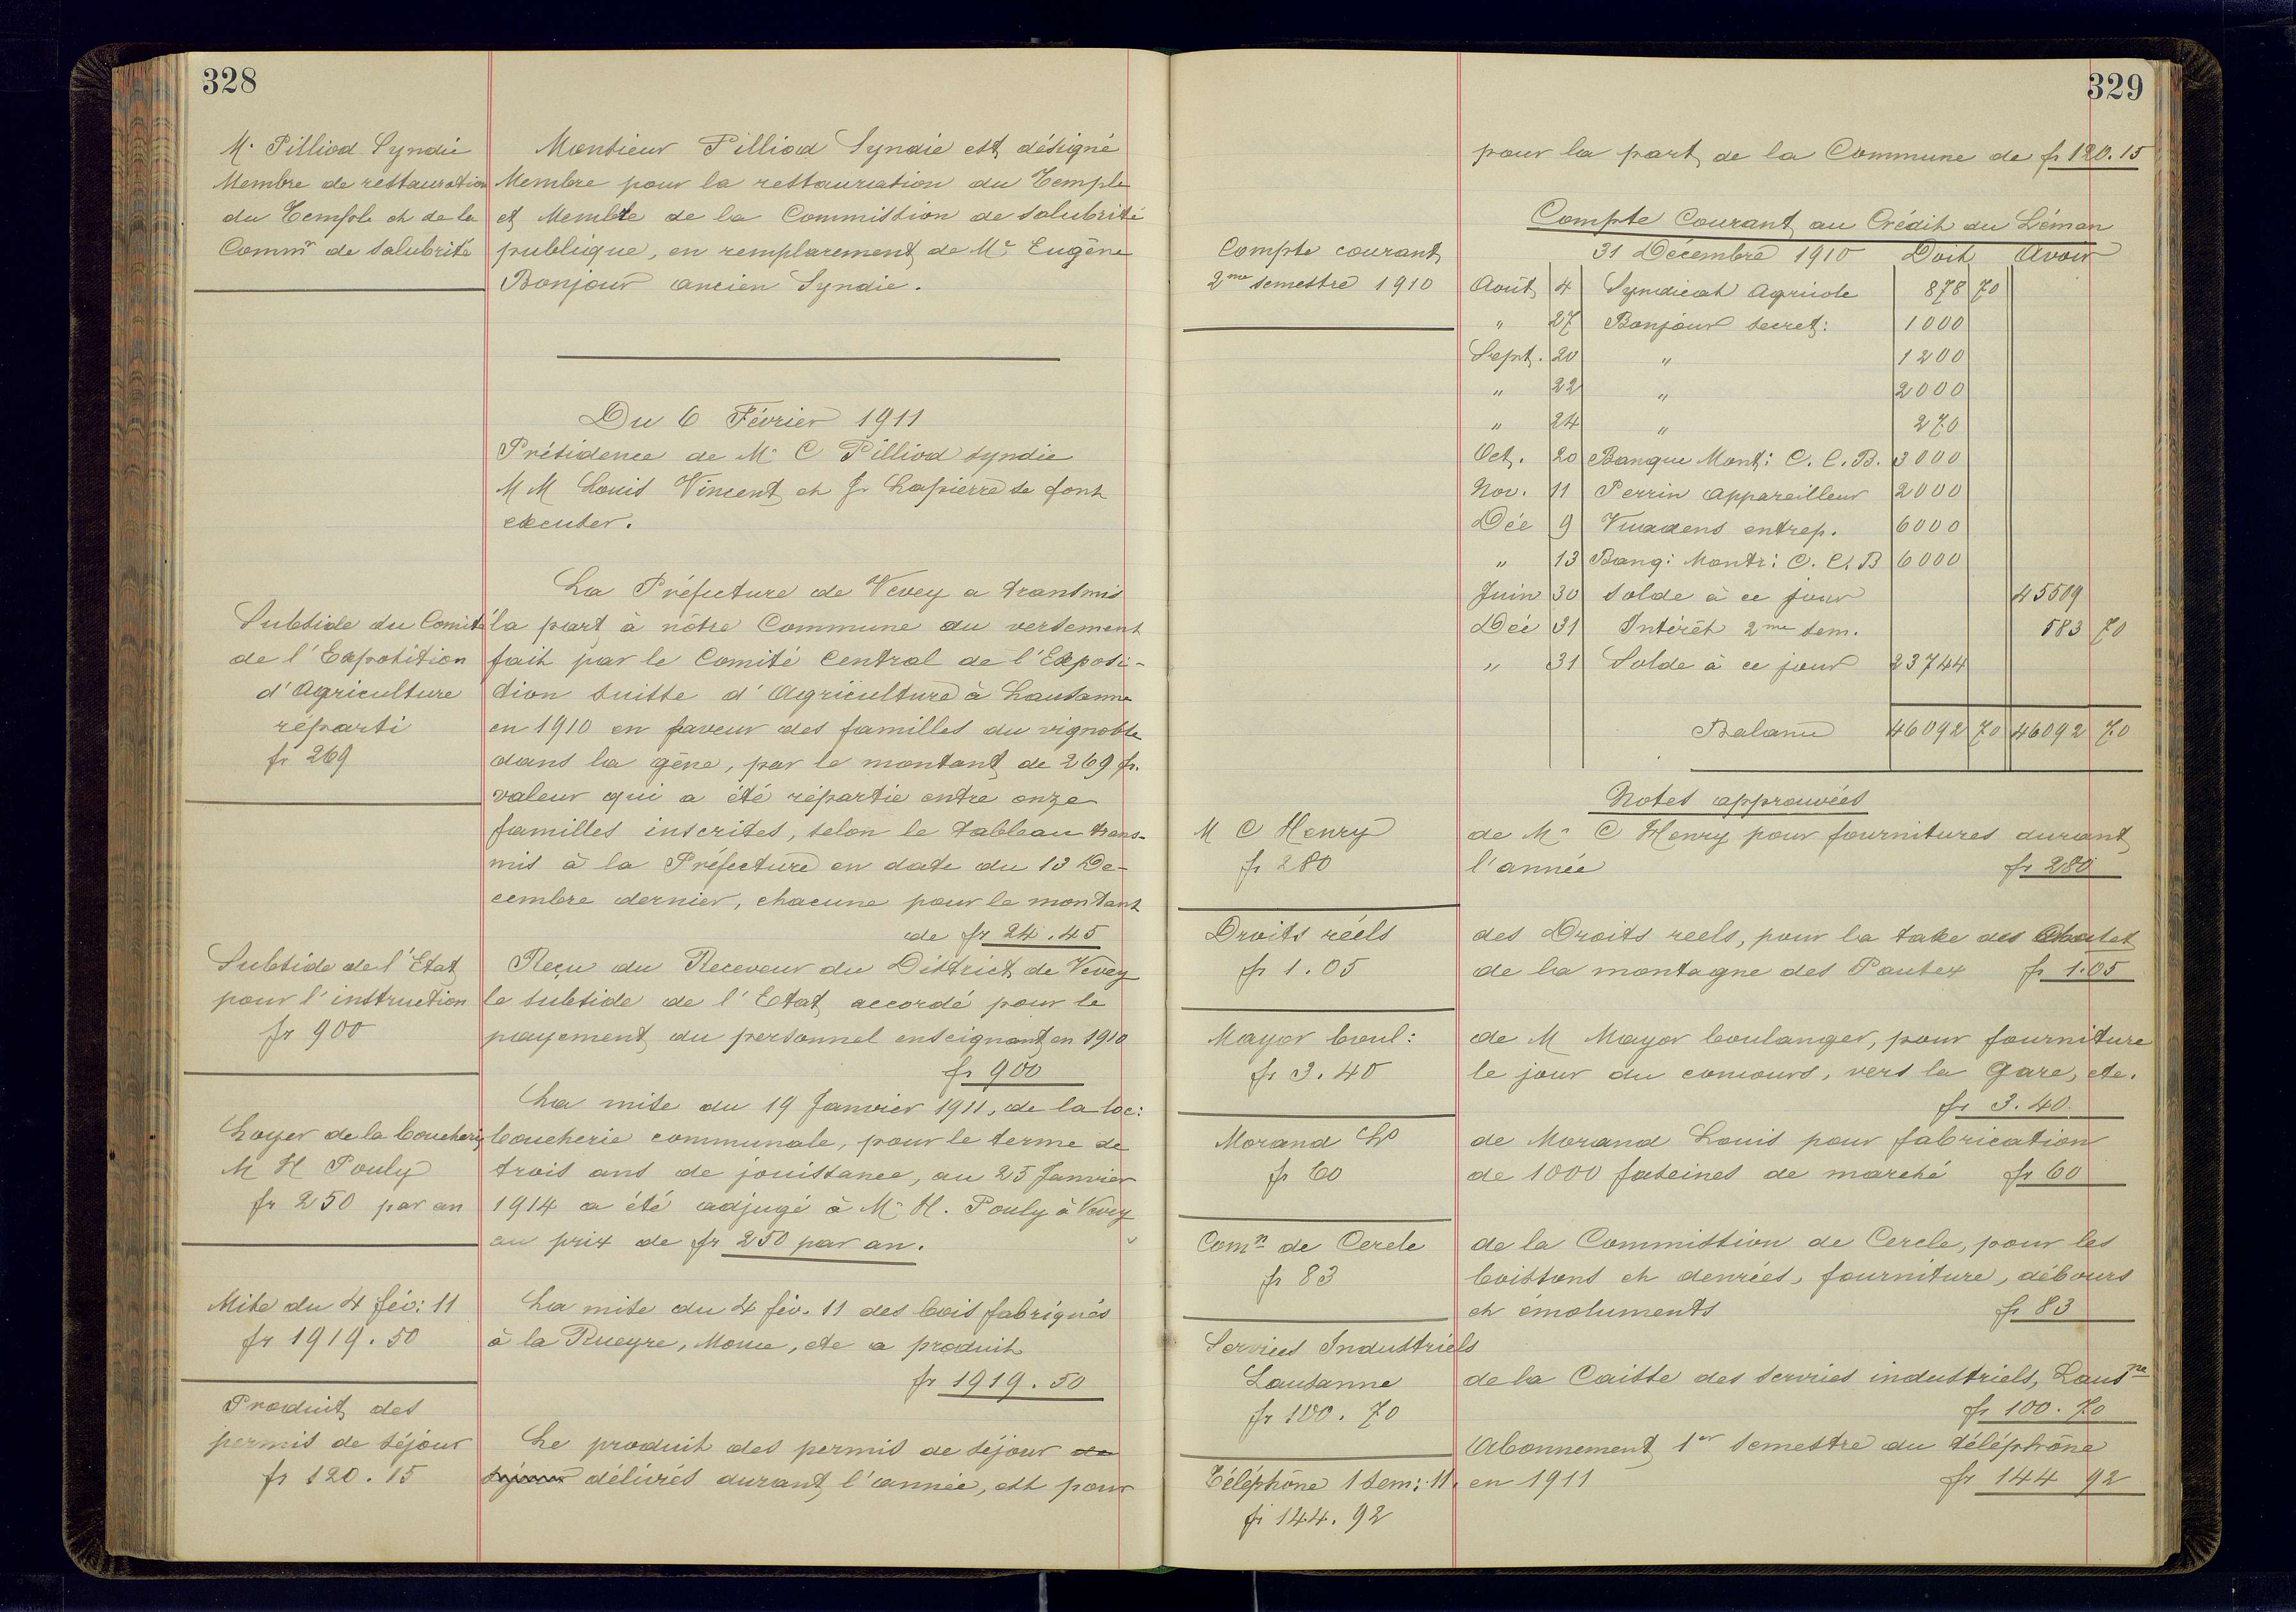 328
M. Pilliod Syndic
Membre de restauration
du Temple et de la
Commn de salubrité
Monsieur Pilliod Syndic est désigné
Membre pour la restauration du Temple
et Membre de la Commission de salubrité
publique, en remplacement de Mr Eugène
Bonjour ancien Syndic.
Du 6 Février 1911
Présidence de Mr C Pilliod syndic
MM Louis Vincent et Js Lapierre se font
excuser.
Subside du Comité
de l'Exposition
d'Agriculture
réparti
fr 269
La Préfecture de Vevey a transmis
la part à nôtre Commune du versement
fait par le Comité Central de l'Exposi-
tion suisse d'Agriculture à Lausanne
en 1910 en faveur des familles du vignoble
dans la gêne, par le montant de 269 fr.
valeur qui a été répartie entre onze
familles inscrites, selon le tableau trans-
mis à la Préfecture en date du 13 De-
cembre dernier, chacune pour le montant
de fr 24.45
Subside de l'Etat
pour l'instruction
fr 900
Reçu du Receveur du District de Vevey
le subside de l'Etat accordé pour le
payement du personnel enseignant en 1910
fr 900
Loyer de la boucherie
M H Pouly
fr 250 par an
La mise du 19 Janvier 1911, de la loc:
boucherie communale, pour le terme de
trois ans de jouissance, au 25 Janvier
1914 a été adjugé à Mr H. Pouly à Vevey
au prix de fr 250 par an.
Mise du 4 fév: 11
fr 1919.50
La mise du 4 fév. 11 des bois fabriqués
à la Rueyre, Moille, etc a produit
fr 1919.50
Produit des
permis de séjour
fr 120.15
Le produit des permis de séjour de
séjour délivrés durant l'année, est pour
329
pour la part de la Commune de fr 120.15
Compte courant
2me semestre 1910
Compte Courant au Crédit du Léman
31 Décembre 1910 Doit Avoir
Août 4 Syndicat Agricole 878 70
" 27 Bonjour secret: 1000
Sept. 20 " 1200
" 22 " 2000
" 24 " 270
Oct. 20 Banque Mont: C. C. B. 3000
Nov. 11 Perrin appareilleur 2000
Déc 9 Vuadens entrep. 6000
" 13 Banq: Montr: C. C. B 6000
Juin 30 Solde à ce jour 45509
Déc 31 Intérêt 2me sem. 583 70
" 31 Solde à ce jour 23744
Balance 46092 70 46092 70
Notes approuvées
M C Henry
fr 280
de Mr C Henry pour fournitures durant
l'année fr 280
Droits réels
fr 1.05
des Droits reels, pour la taxe des Chalet
de la montagne des Pautex fr 1.05
Mayor boul:
fr 3.40
de M Mayor boulanger, pour fourniture
le jour du concours, vers la Gare, etc.
fr 3.40
Morand Ls
fr 60
de Morand Louis pour fabrication
de 1000 fascines de marché fr 60
Comn de Cercle
fr 83
de la Commission de Cercle, pour les
boissons et denrées, fourniture, débours
et émoluments fr 83
Services Industriels
Lausanne
fr 100.70
de la Caisse des services industriels, Lausne
fr 100.70
Téléphone 1 Sem: 11.
fr 144.92
Abonnement 1er semestre du téléphone
en 1911 fr 144 92